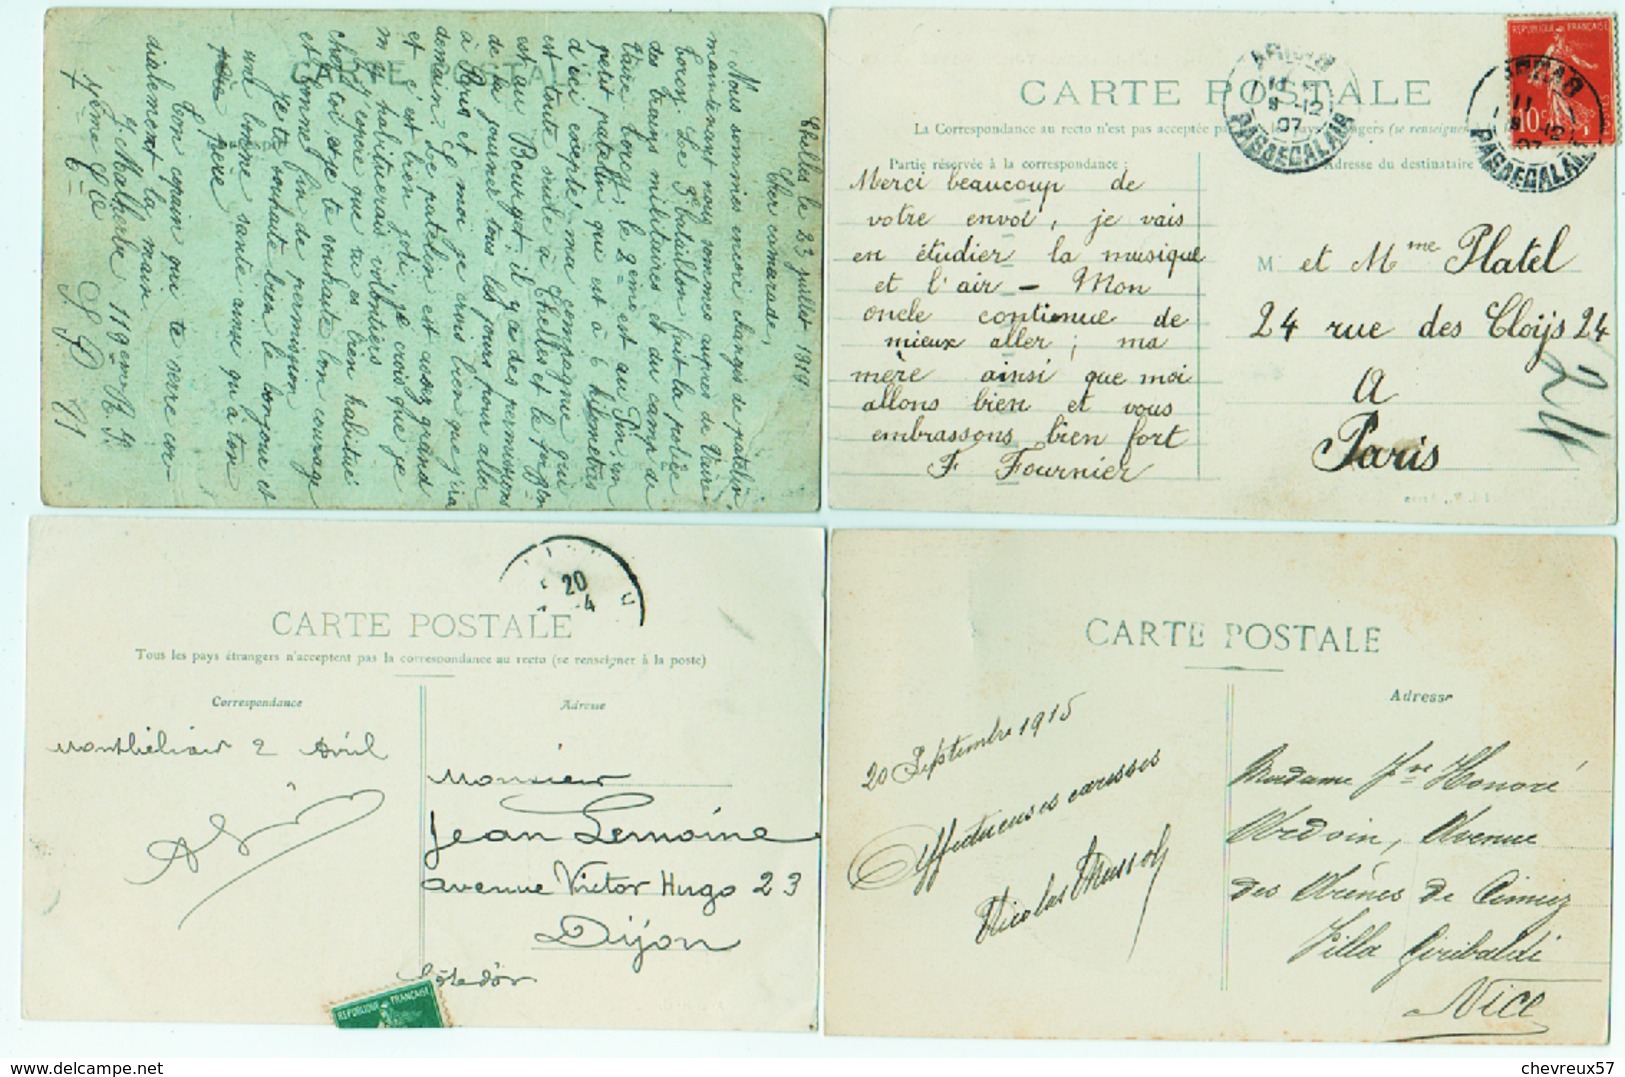 CARTE POSTALE
Chelles le 23 juillet 1919
Cher camarade,
Nous sommes encore changés de patelin,
maintenant nous sommes auprès de Vaire
torcy. Le 1er bataillon fait la police
des trains militaires et du camp de
Vaire torcy, le 2ème est au Pin, un
petit patelin qui est à 6 kilomètres
d'ici excepté ma compagnie qui
est toute seule à Chelles et le
est au Bourget, il y a des permissions
de la journée tous les jours pour aller
à Paris et moi je crois bien que j'irai
demain. Le patelin est assez grand
et c'est bien joli, je crois que je
m'y habituerais volontiers
J'espère que tu es bien habitué
chez toi et je te souhaite bon courage
et bonne fin de permission
Je te souhaite bien le bonjour et
une bonne santé ainsi qu'à ton
père
Ton copain qui te serre cor-
dialement la main
J. Malherbe 119eme R. I.
7ème Cie S P
CARTE POSTALE
La Correspondance au recto n'est pas acceptée par les pays étrangers (se renseigner
Partie réservée à la correspondance :
Adresse du destinataire
REPUBLIQUE FRANÇAISE
10c
11
12
07
PAS DE CALAIS
11
12
07
PAS DE CALAIS
Merci beaucoup de
votre envoi, je vais
en étudier la musique
et l'air – Mon
oncle continue de
mieux aller ; ma
mère ainsi que moi
allons bien et vous
embrassons bien fort
F Fournier
M et Mme Platel
24 rue des Cloijs 24
A
Paris
24
20
4
CARTE POSTALE
Tous les pays étrangers n'acceptent pas la correspondance au recto (se renseigner à la poste)
Correspondance
Adresse
Montbéliard 2 Avril
Monsieur
Jean Lemoine
avenue Victor Hugo 23
Dijon
Côte d'or
REPUBLIQUE FRANÇAISE
CARTE POSTALE
Adresse
20 Septembre 1915
Affectueuses caresses
Nicolas
Madame Vve Honoré
Ardoin, Avenue
des Arènes de Cimiez
Villa Garibaldi
Nice
delcampe.net
chevreux57